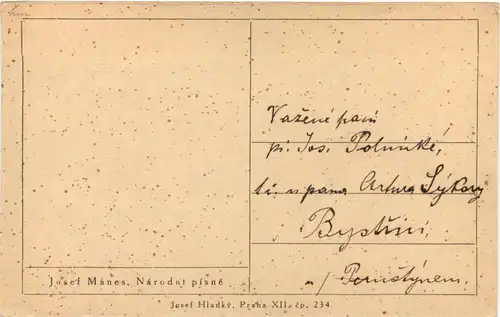 Važené paní
pí. Jos. Polnické,
t.č. u pana Artura Sýkory
Bystřici
n/ Pernštýnem.
Josef Mánes, Národní písně
Josef Hladký, Praha XII. čp. 234